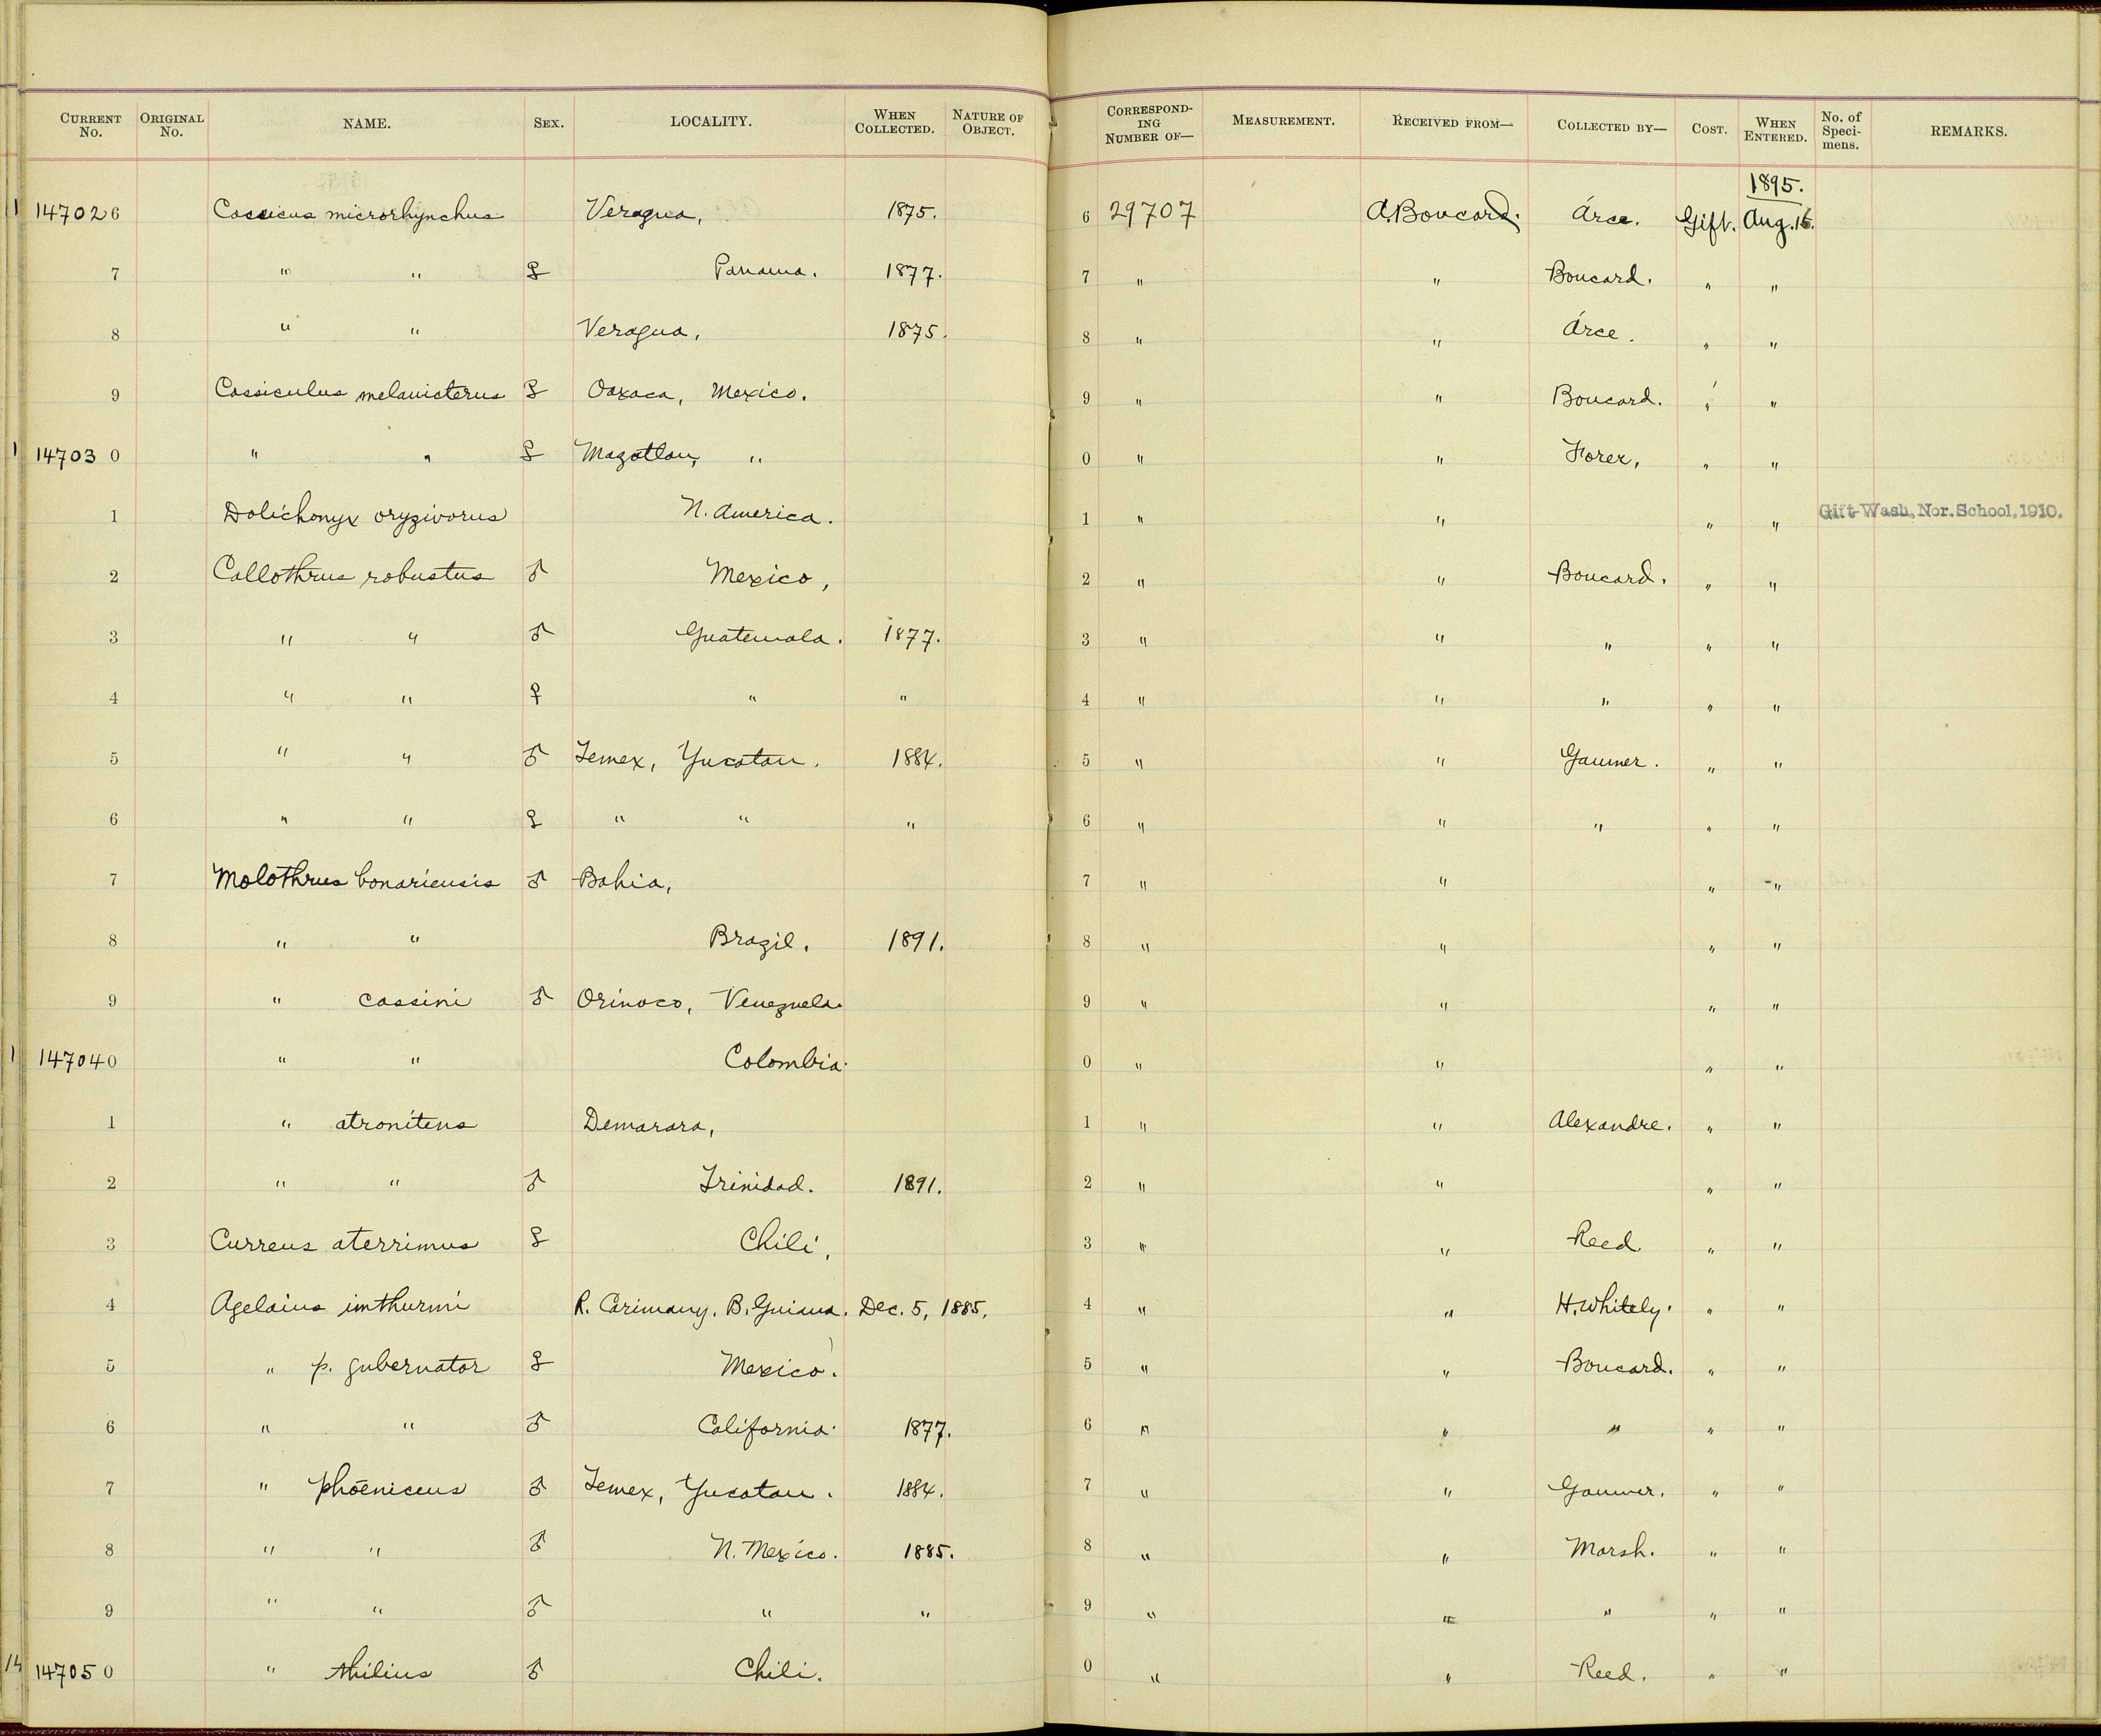 CURRENT No. ORIGINAL No. NAME. SEX. LOCALITY. WHEN COLLECTED. NATURE OF OBJECT. CORRESPONDING NUMBER OF— MEASUREMENT. RECEIVED FROM— COLLECTED BY— COST. WHEN ENTERED. No. of Specimens. REMARKS.
1895.
147026 Cassicus microrhynchus Veragua, 1875. 6 29707 A. Boucard. Árce. Gift. Aug. 15.
7 " " ♀ Panama. 1877. 7 " " Boucard. " "
8 " " Veragua, 1875. 8 " " Árce. " "
9 Cassiculus melanicterus ♀ Oaxaca, Mexico. 9 " " Boucard. " "
147030 " " ♀ Mazatlan, " 0 " " Forer, " "
1 Dolichonyx oryzivorus N. America. 1 " " " " Gift-Wash, Nor. School, 1910.
2 Callothrus robustus ♂ Mexico, 2 " " Boucard. " "
3 " " ♂ Guatemala. 1877. 3 " " " " "
4 " " ♀ " " 4 " " " " "
5 " " ♂ Temex, Yucatan. 1884. 5 " " Gaumer. " "
6 " " ♀ " " " 6 " " " " "
7 Molothrus bonariensis ♂ Bahia, 7 " " " "
8 " " Brazil. 1891. 8 " " " "
9 " cassini ♂ Orinoco, Venezuela. 9 " " " "
147040 " " Colombia. 0 " " " "
1 " atronitens Demarara, 1 " " Alexandre. " "
2 " " ♂ Trinidad. 1891. 2 " " " "
3 Curreus aterrimus ♀ Chili, 3 " " Reed " "
4 Agelaius imthurmi R. Carimany. B. Guiana. Dec. 5, 1885. 4 " " H. Whitely. " "
5 " p. gubernator ♀ Mexico. 5 " " Boucard. " "
6 " " ♂ California. 1877. 6 " " " " "
7 " phoeniceus ♂ Temex, Yucatan. 1884. 7 " " Gaumer. " "
8 " " ♂ N. Mexico. 1885. 8 " " Marsh. " "
9 " " ♂ " " 9 " " " " "
147050 " thilius ♂ Chili. 0 " " Reed. " "